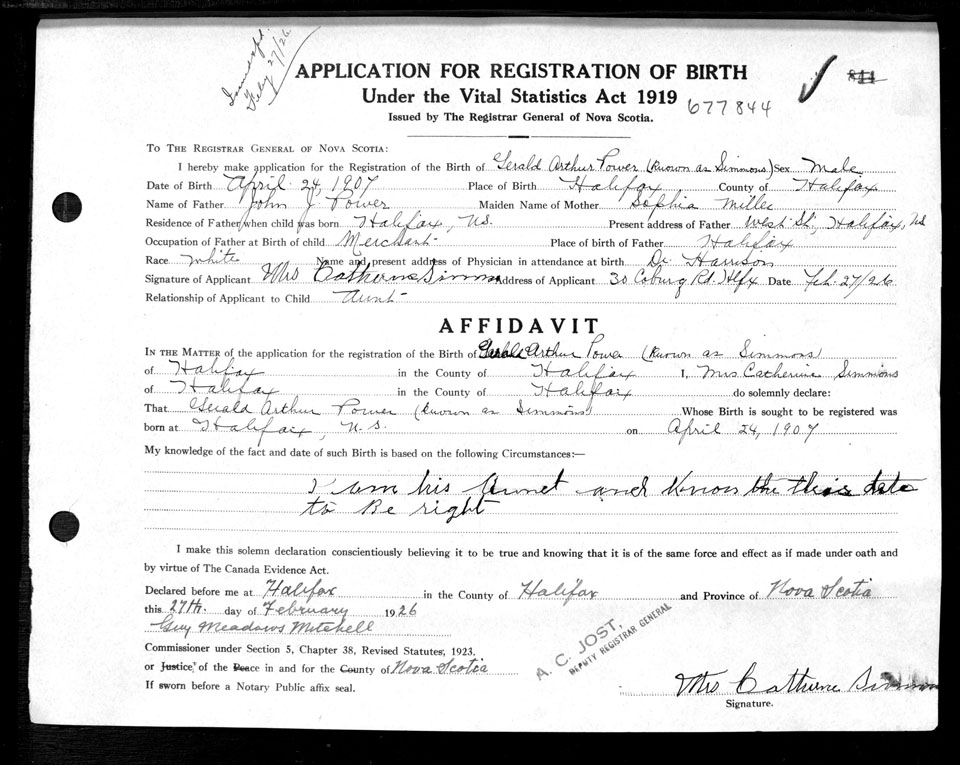 Feby 27/26.
APPLICATION FOR REGISTRATION OF BIRTH
844
Under the Vital Statistics Act 1919
677844
Issued by The Registrar General of Nova Scotia.
To The Registrar General of Nova Scotia:
I hereby make application for the Registration of the Birth of Gerald Arthur Power (Known as Simmons) Sex Male
Date of Birth April 24, 1907 Place of Birth Halifax County of Halifax
Name of Father John J Power Maiden Name of Mother Sophia Miller
Residence of Father when child was born Halifax, N.S. Present address of Father West St, Halifax, N.S
Occupation of Father at Birth of child Merchant Place of birth of Father Halifax
Race White Name and present address of Physician in attendance at birth Dr Harrison
Signature of Applicant Mrs Catherine Simmo Address of Applicant 30 Coburg Rd. Hlfx Date Feb. 27/26
Relationship of Applicant to Child Aunt
AFFIDAVIT
In the Matter of the application for the registration of the Birth of Gerald Arthur Power (Known as Simmons)
of Halifax in the County of Halifax I, Mrs Catherine Simmons
of Halifax in the County of Halifax do solemnly declare:
That Gerald Arthur Power (Known as Simmons) Whose Birth is sought to be registered was
born at Halifax, N.S. on April 24, 1907
My knowledge of the fact and date of such Birth is based on the following Circumstances:—
I am his Aunet and Know the this date
to Be right
I make this solemn declaration conscientiously believing it to be true and knowing that it is of the same force and effect as if made under oath and
by virtue of The Canada Evidence Act.
Declared before me at Halifax in the County of Halifax and Province of Nova Scotia
this 27th. day of February 1926
Guy Meadows Mitchell
Commissioner under Section 5, Chapter 38, Revised Statutes, 1923.
or Justice, of the Peace in and for the County of Nova Scotia
If sworn before a Notary Public affix seal.
A. C. JOST,
DEPUTY REGISTRAR GENERAL
Mrs Catherine Simmon
Signature.